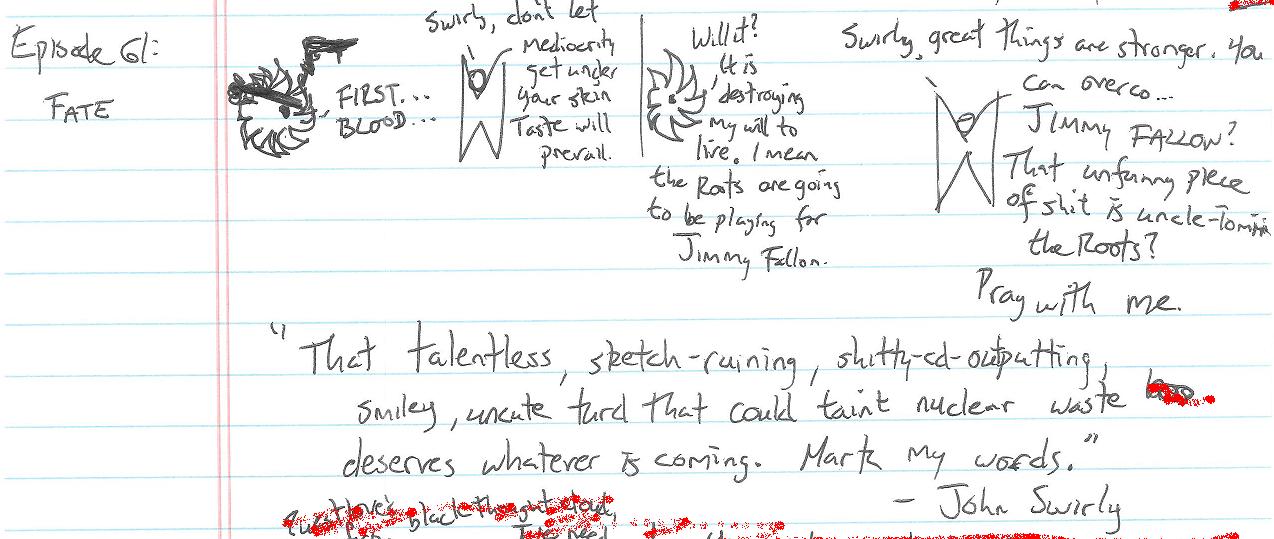 Episode 61:
FATE
FIRST...
BLOOD...
Swirly, don't let
Mediocrity
get under
your skin
Taste will
prevail.
Will it?
It is
destroying
my will to
live. I mean
the Roots are going
to be playing for
Jimmy Fallon.
Swirly, great things are stronger. You
can overco...
JIMMY FALLON?
That unfunny piece
of shit is uncle-Tomin
the Roots?
Pray with me.
"That talentless, sketch-ruining, shitty-cd-outputting,
smiley, uncute turd that could taint nuclear waste
deserves whatever is coming. Mark my words."
- John Swirly
black thought
need